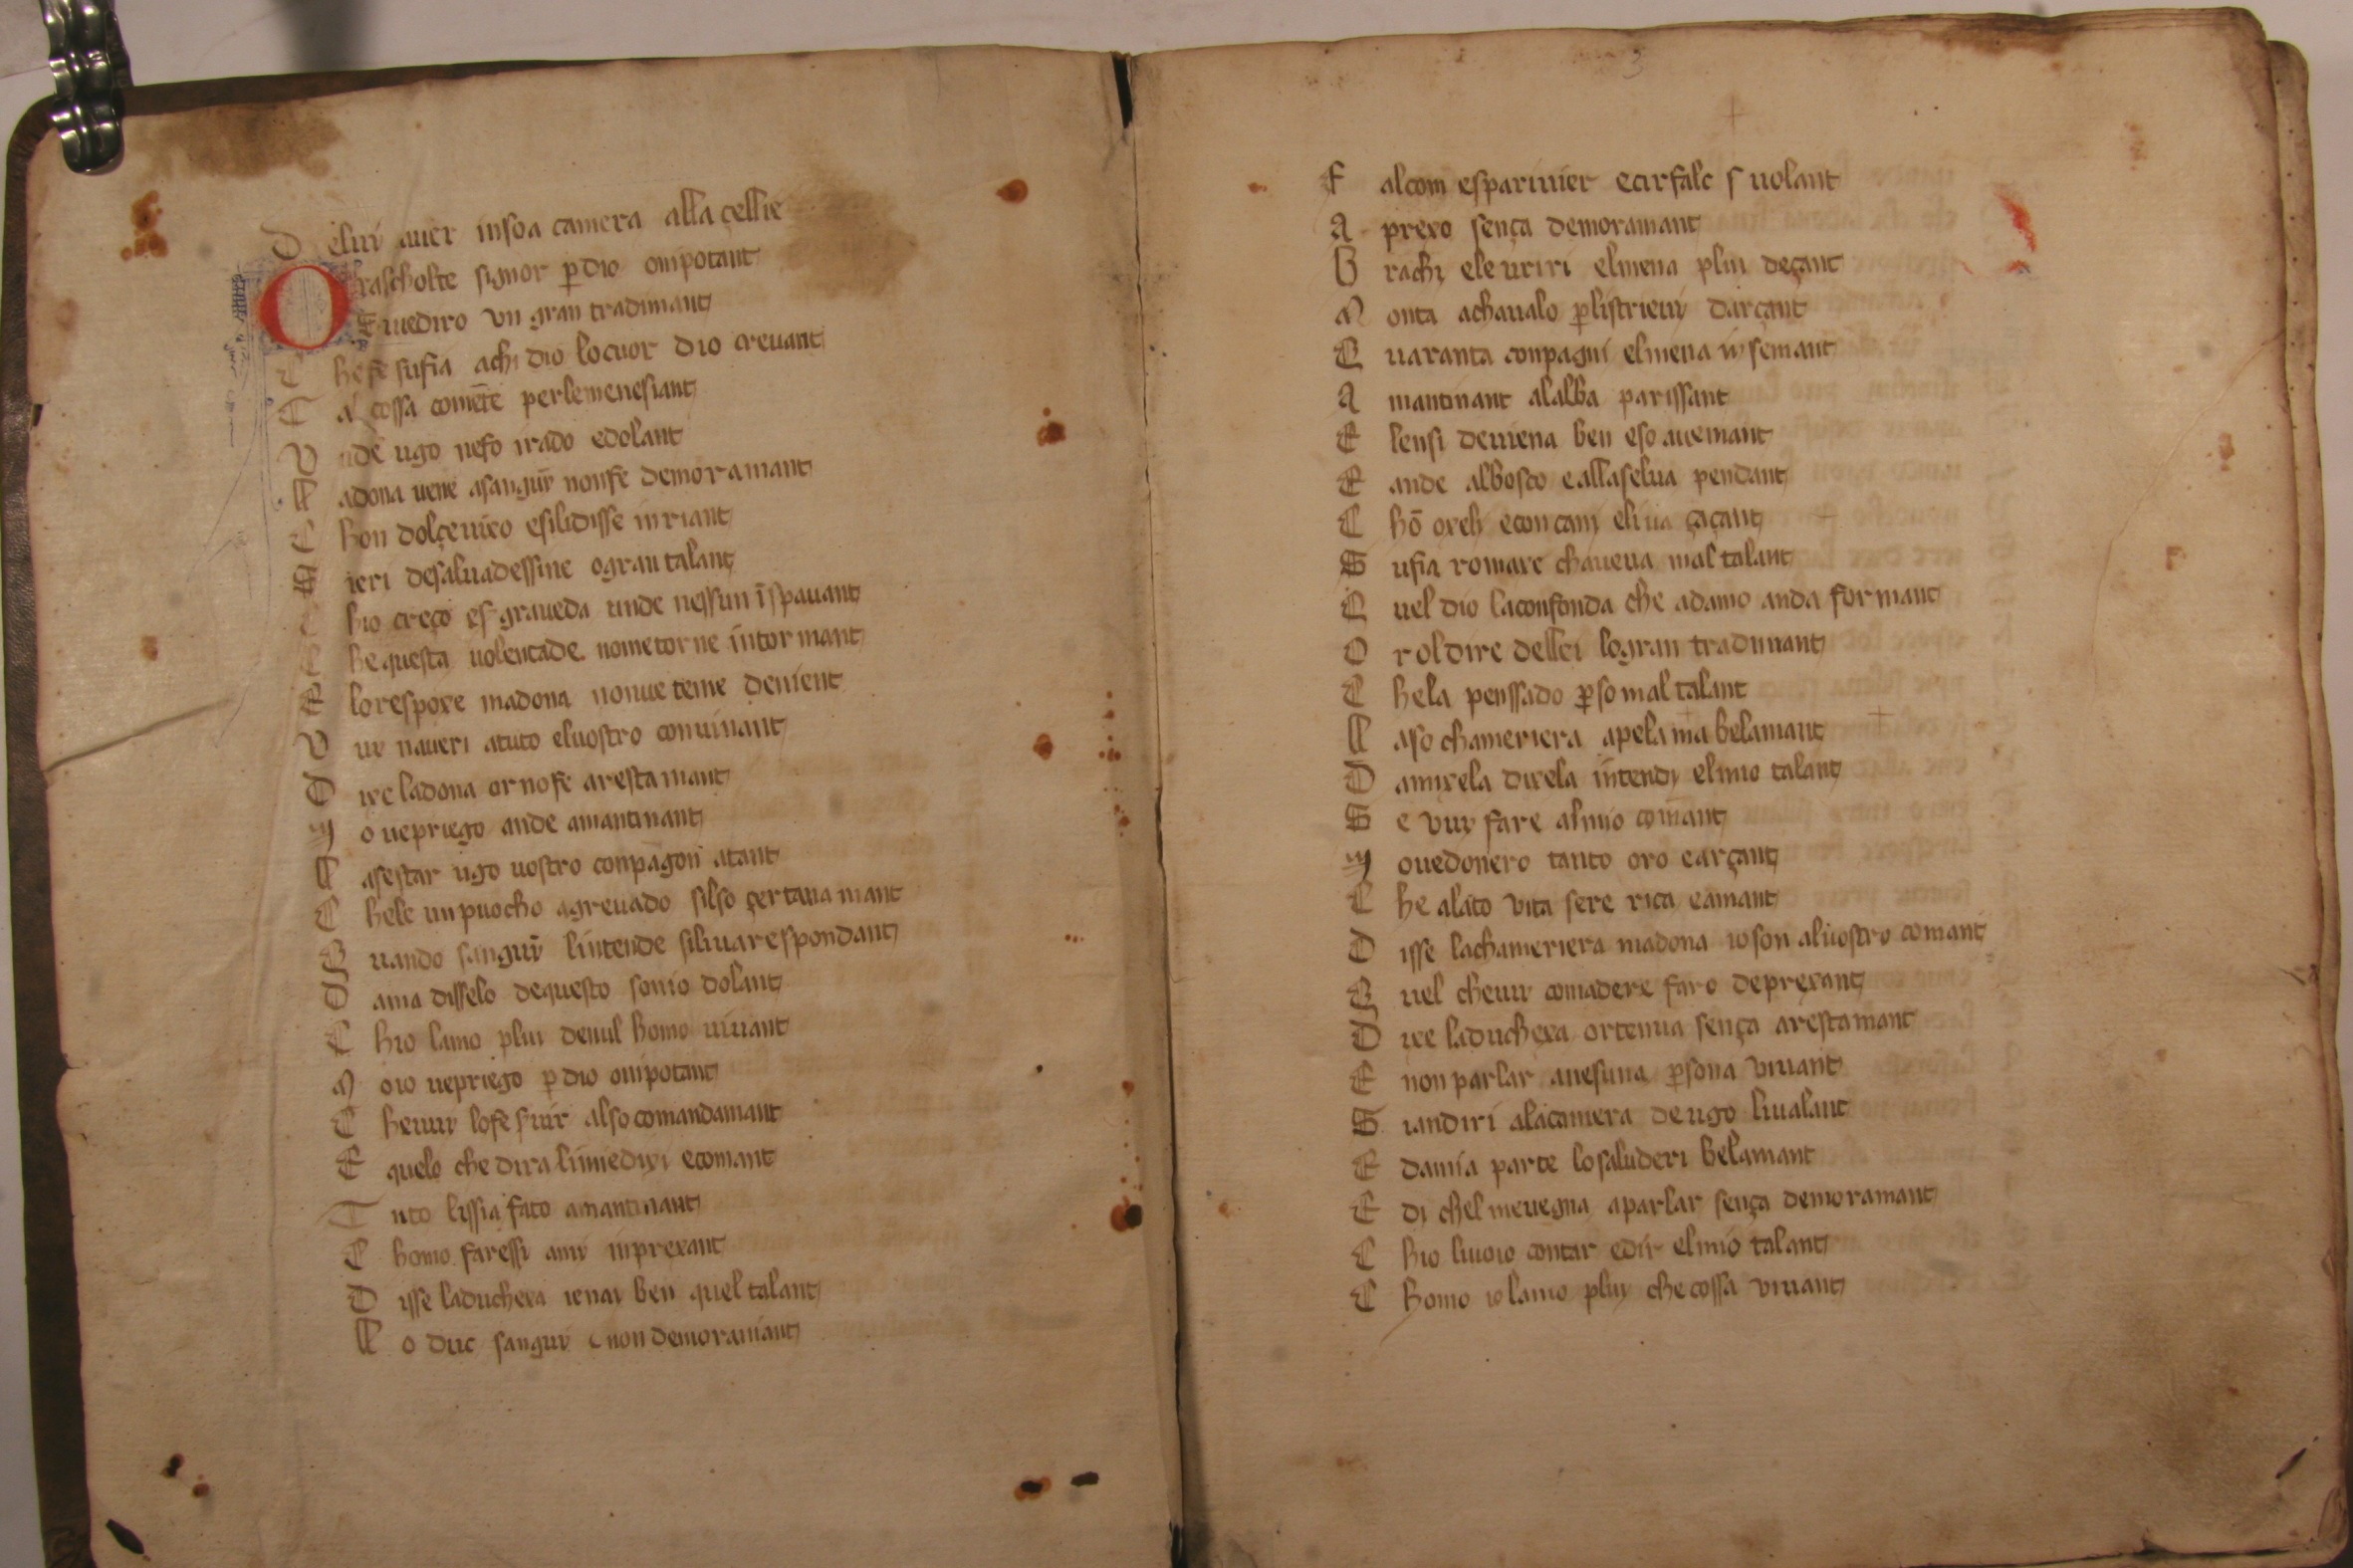 D eluy auer insoa camera alla cellie
O rascholte signor p dio onipotant
E ue diro vn gran tradimant
C he fe sufia achi dio lo cuor dio crevant
T al cossa comete per lemenesiant
V nde ugo nefo irado edolant
ll adona uene asanguin nonfe demoramant
C hon dolçe uixo esilidisse inriant
S ieri desaluadessine ogran talant
C hio creço es graueda unde nessun ispauant
C he questa uolentade nometorne intormant
E lo respoxe madona nonue teme denient
V uy naueri atuto eluostro conuinant
D ixe ladona or nofe arestamant
Y o uepriego ande amantinant
ll asestar ugo uostro conpagon atant
C hele un puocho agreuado silso certanamant
Q uando sanguin lintende siliua respondant
D ama disselo dequesto sonio dolant
C hio lamo plui denul homo uiuant
M oio uepriego p dio onipotant
C heuuy lofe seruir also comandamant
E quelo che dira limedixi ecomant
T uto lissia fato amantinant
C homo faressi amy inprexant
D isse laduchexa ienay ben quel talant
ll o duc sanguin e non demoramant
3
F alcom espariuier ecirfalc s uolant
A prexo sença demoramant
B rachi eleuriri elmena plui deçant
M onta achaualo p listrieuy darçant
Q uaranta conpagni elmena insemant
A mantinant alalba parissant
E lensi deuiena ben eso auemant
E ande albosco ealla selua pendant
C hō oxeli econ cani eliua çaçant
S ufia romaxe chaueua mal talant
Q uel dio laconfonda che adamo anda formant
O r oldire dellei logran tradimant
C hela penssado p so mal talant
ll aso chameriera apela ma belamant
D amixela dixela intendi elmio talant
S e vuy fare almio comant
Y ouedonero tanto oro earçant
C he alato vita sere rica emant
D isse lachameriera madona io son aluostro comant
Q uel cheuuy comadere faro deprexant
D ixe laduchexa or tenua sença arestamant
E non parlar anesuna p sona viuant
S iandiri alacamera de ugo liualant
E damia parte lo saluderi belamant
E di chel meuegna aparlar sença demoramant
C hio liuoio contar edir elmio talant
C homo io lamo pluy che cossa viuant